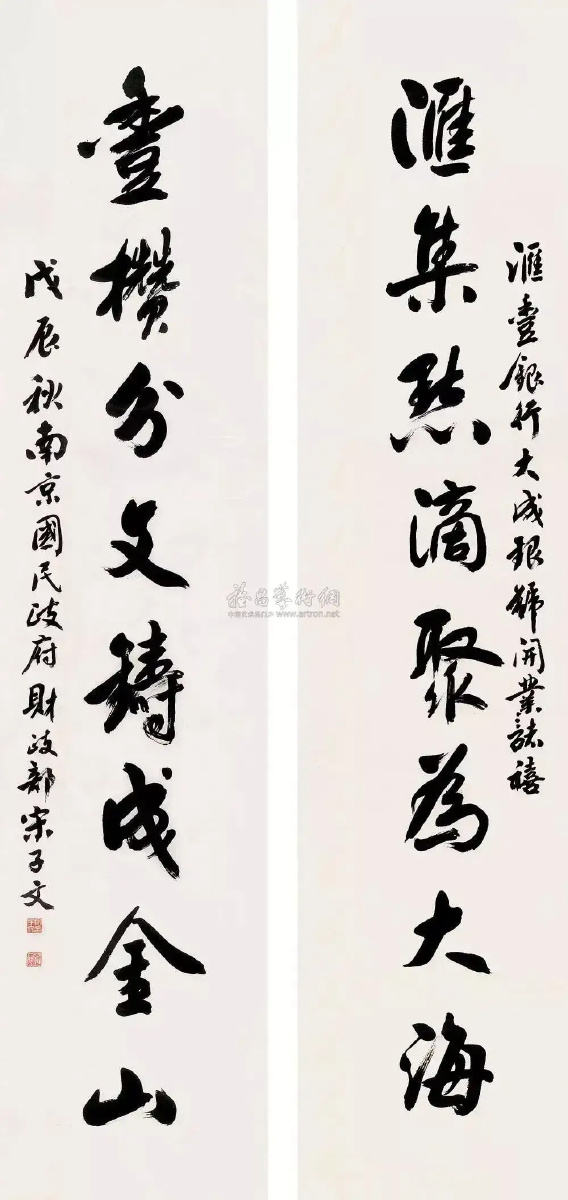 滙豐銀行大成銀號開業誌禧
滙集點滴聚為大海
豐攢分文鑄成金山
戊辰秋南京國民政府財政部宋子文
雅昌藝術網
www.artron.net